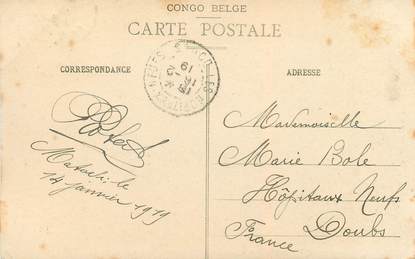 CONGO BELGE
CARTE POSTALE
CORRESPONDANCE
ADRESSE
Matadi, le
14 janvier 1919
Mademoiselle
Marie Bole
Hôpitaux Neufs
Doubs
France